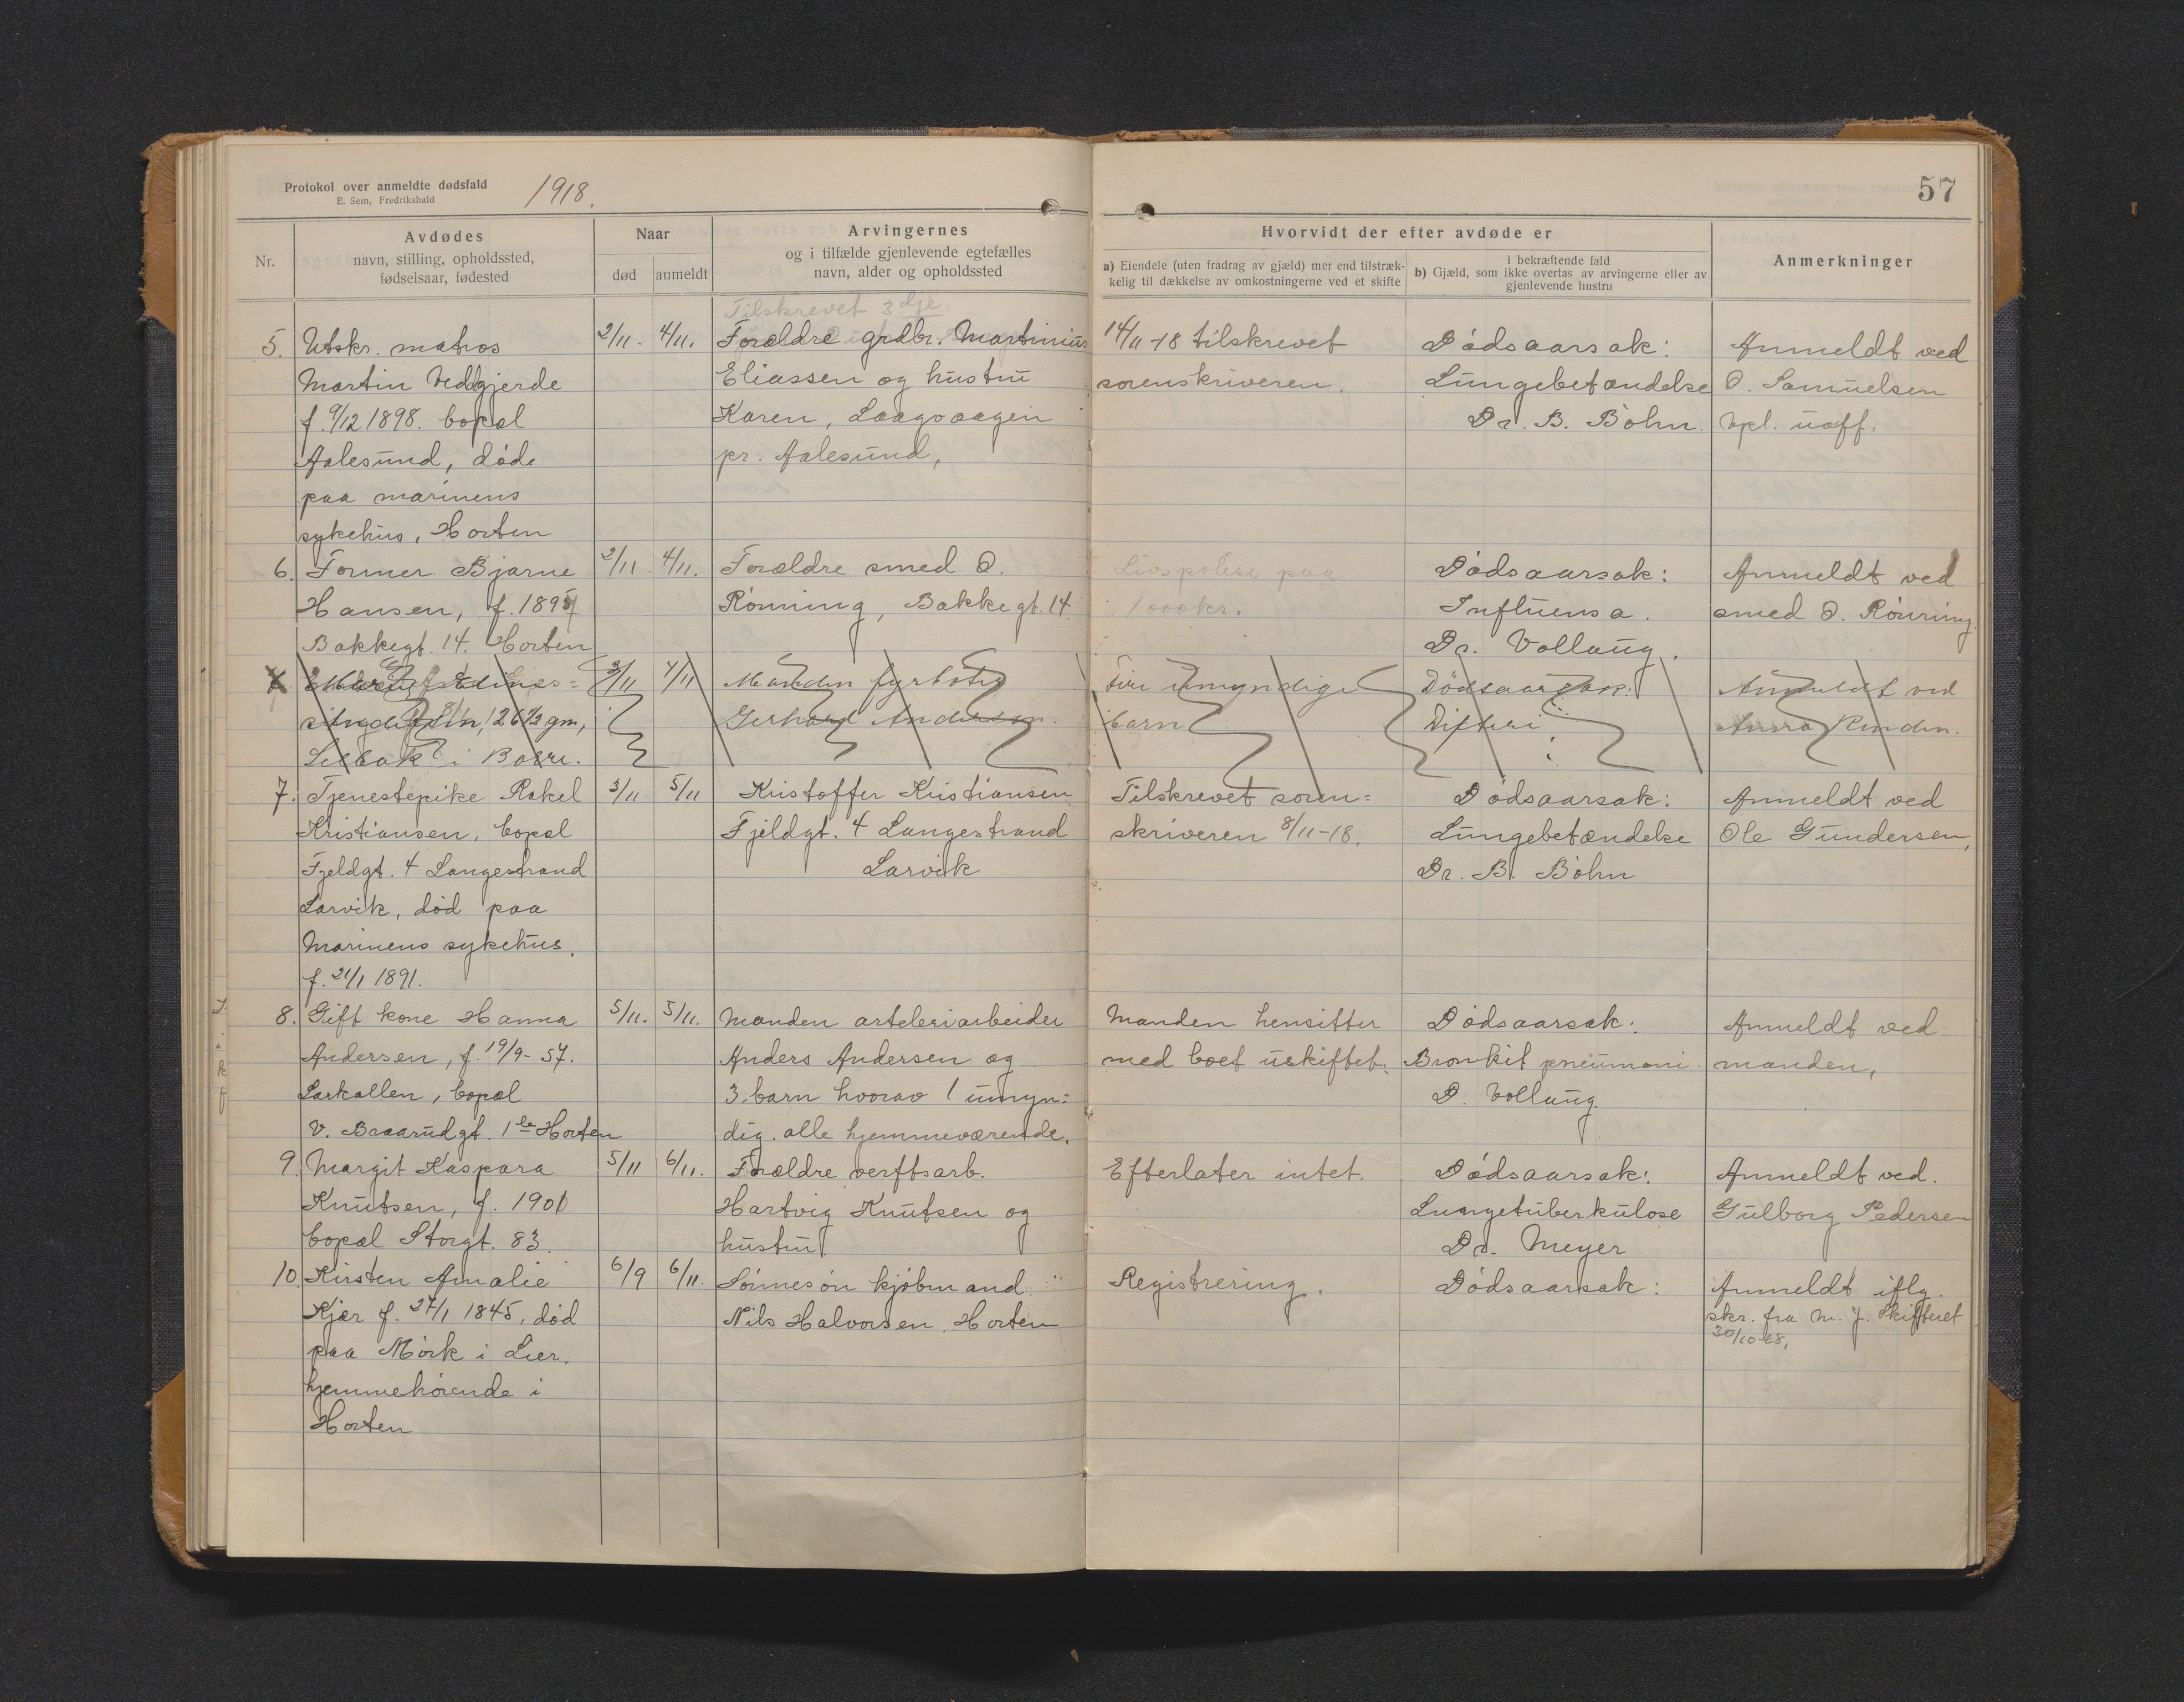 Protokol over anmeldte dødsfald
E. Sem, Fredrikshald
1918.
57
Nr.
Avdødes
navn, stilling, opholdssted,
fødselsaar, fødested
Naar
død
anmeldt
Arvingernes
og i tilfælde gjenlevende egtefælles
navn, alder og opholdssted
Hvorvidt der efter avdøde er
a) Eiendele (uten fradrag av gjæld) mer end tilstræk-
kelig til dækkelse av omkostningerne ved et skifte
i bekræftende fald
b) Gjæld, som ikke overtas av arvingerne eller av
gjenlevende hustru
Anmerkninger
5. Utskr. matros
Martin Vedgjerde
f. 9/12 1898. bopæl
Aalesund, døde
paa marinens
sykehus, Horten
2/11. 4/11.
Tilskrevet 3dje
Forældre grdbr. Martinius
Eliassen og hustru
Karen, Laagvaagen
pr. Aalesund,
14/11-18 tilskrevet
sorenskriveren.
Dødsaarsak:
Lungebetændelse
Dr. B. Bøhn.
Anmeldt ved
O. Samuelsen
vpl. uoff.
6. Former Bjarne
Hansen, f. 1895
Bakkegt. 14. Horten
2/11. 4/11.
Forældre smed O.
Rønning, Bakkegt. 14.
Livspolise paa
1000 kr.
Dødsaarsak:
Influensa.
Dr. Vollaug.
Anmeldt ved
smed O. Rønning.
26 1/2 gm,
i Borre.
3/11 4/11
Manden fyrbøter
Gerhard Andersen.
Fire umyndige
barn
Dødsaarsak:
Difteri
Anmeldt ved
Anna
7. Tjenestepike Rakel
Kristiansen, bopæl
Fjeldgt. 4 Langestrand
Larvik, død paa
Marinens sykehus.
f. 21/1 1891.
3/11 5/11
Kristoffer Kristiansen
Fjeldgt. 4 Langestrand
Larvik
Tilskrevet soren=
skriveren 8/11-18.
Dødsaarsak:
Lungebetændelse
Dr. B. Bøhn
Anmeldt ved
Ole Gundersen,
8. Gift kone Hanna
Andersen, f. 19/9-57.
Larkollen, bopæl
V. Braarudgt. 1 b Horten
5/11. 5/11.
Manden arteleriarbeider
Anders Andersen og
3 barn hvorav 1 umyn=
dig. alle hjemmeværende.
Manden hensitter
med boet uskiftet.
Dødsaarsak:
Bronkit pneumoni.
D. Vollaug.
Anmeldt ved
manden,
9. Margit Kaspara
Knutsen, f. 1901
bopæl Storgt. 83.
5/11 6/11.
Forældre verftsarb.
Hartvig Knutsen og
hustru
Efterlater intet.
Dødsaarsak:
Lungetuberkulose
Dr. Meyer
Anmeldt ved.
Gulborg Pedersen
10. Kirsten Amalie
Kjær f. 27/1 1845, død
paa Mørk i Lier.
hjemmehørende i
Horten
6/9 6/11.
Sønnesøn kjøbmand
Nils Halvorsen, Horten
Registrering.
Dødsaarsak:
Anmeldt iflg.
skr. fra M. J. Skifteret
30/10-18.